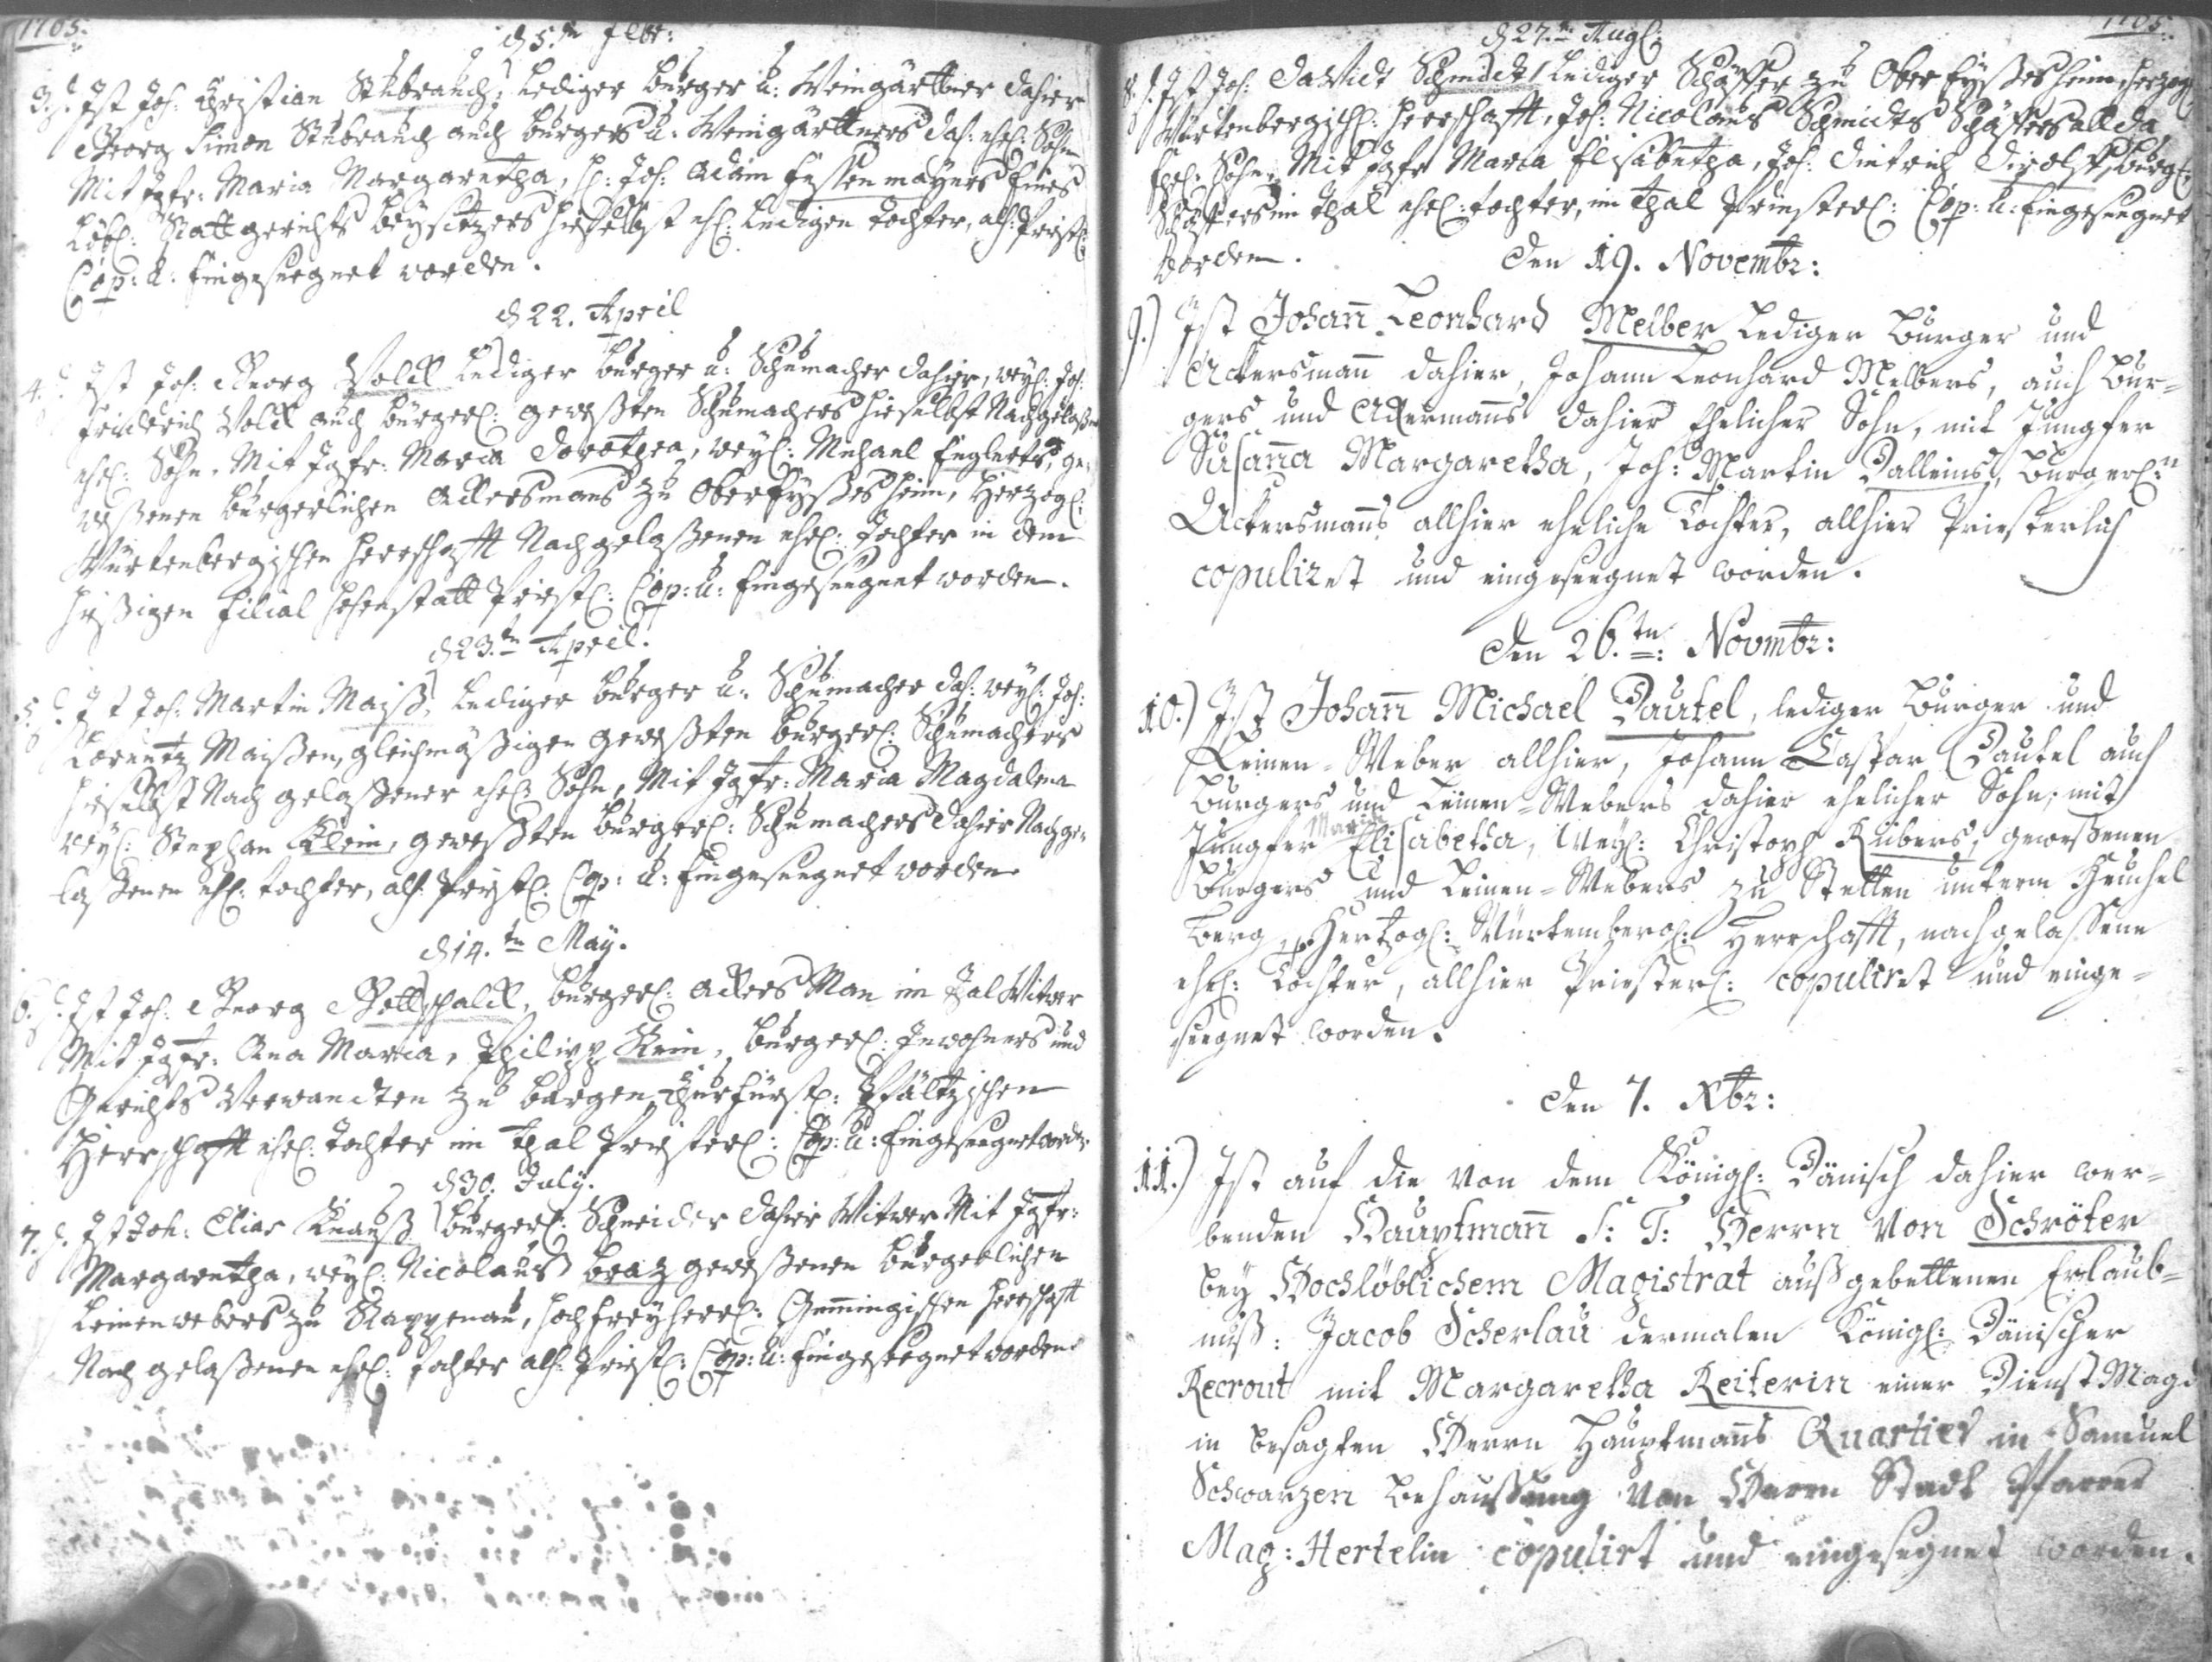 1765.
d 5.tn Febr:
3. Ist Joh: Christian Stubrauch, lediger burger u: Weingärttner dahier
Georg Simon Stubrauch auch burgers u: Weingärttners das: ehel: Sohn
Mit Jgfr: Maria Margaretha, H: Joh: Adam Fessenmayers Eines
Löbl: Statt gerichts beysitzers hieselbst ehl: ledigen tochter, alh: Priestl:
Cop: u: Eingeseegnet worden.
d 22. April
4. Ist Joh: Georg Volck lediger burger u: Schumacher dahier, weyl: Joh:
Friederich Volck auch burgerl: geweßten Schumachers hieselbst Nachgelaßner
ehel: Sohn, Mit Jgfr: Maria Dorothea, weyl: Michael Englerts, ge-
weßenen burgerlichen Ackersmans zu Ober Eyßesheim, Herzogl:
Würtenbergischen Herrschafft Nachgelaßenen ehel: tochter in dem
hießigen Filial Hohenstatt Priestl: Cop: u: Eingeseegnet worden.
d 23.tn April.
5. Ist Joh: Martin Maiß, lediger burger u: Schumacher das: weyl: Joh:
Lorentz Maißen, gleichmäßigen geweßten burgerl: Schumachers
hieselbst Nach gelaßener ehel: Sohn, Mit Jgfr: Maria Magdalena
weyl: Stephan Klein, geweßten burgerl: Schumachers dahier Nachge-
laßenen ehl: tochter, alh: Priestl: Cop: u: Eingeseegnet worden.
d 14.tn May.
6. Ist Joh: Georg Gottschalck, burgerl: Ackers Man im Thal Witwer
Mit Jgfr: Ana Maria, Philipp Kein, burgerl: Inwohners und
Gerichts Verwandten zu bargen, Churfürstl: Pfältzischen
Herrschafft ehel: tochter im Thal Priesterl: Cop: u: Eingeseegnet worden.
d 30. July.
7. Ist Joh: Elias Knauß burgerl: Schneider dahier Witwer Mit Jgfr:
Margaretha, weyl: Nicolaus braz geweßenen burgerlichen
Leinenwebers zu Rappenau, Hochfreyherrl: Gemmingischen Herrschafft
Nach gelaßenen ehel: tochter alh: Priestl: Cop: u: Eingeseegnet worden.
1765.
d 27.tn Augl:
8. Ist Joh: David Schmidt, lediger Schäffer zu Ober Eyßesheim, Herzogl:
Würtenbergisch: Herrschafft, Joh: Nicolaus Schmidts Schäffers allda
Ehel: Sohn, Mit Jgfr Maria Elisabetha, Joh: Dietrich burgl:
Schäffers im Thal ehel: tochter, im Thal Priesterl: Cop: u: Eingeseegnet
worden.
Den 19. Novembr:
9.) Ist Johann Leonhard Melber lediger Burger und
Ackersmann dahier, Johann Leonhard Melbers, auch Bur-
gers und Ackermanns dahier Ehelicher Sohn, mit Jungfer
Susanna Margaretha, Joh: Martin Dalleins, Burgerl:n
Ackersmanns allhier eheliche Tochter, allhier Priesterlich
copuliret und eingeseegnet worden.
Den 26.tn: Novmbr:
10.) Ist Johann Michael Dautel, lediger Burger und
Leinen-Weber allhier, Johann Caspar Dautel auch
Burgers und Leinen-Webers dahier ehelicher Sohn, mit
Jungfer Maria Elisabetha, Weyl: Christoph Kübers, geweßenen
Burgers und Leinen-Webers zu Stetten unterm Heuchel
berg, Hertzogl: Würtembergl: Herrschafft, nachgelassene
ehel: Tochter, allhier Priesterl: copuliret und einge-
seegnet worden.
Den 7. Xbr:
11.) Ist auf die von dem Königl: Dänisch dahier wer-
benden Hauptmann S: T: Herrn von Schröter
bey Hochlöblichem Magistrat außgebettenen Erlaub-
nuß: Jacob Scherlau dermalen Königl: Dänischer
Recrout mit Margaretha Reiterin einer Dienst Magd
in besagten Herrn Hauptmanns Quartier in Samuel
Schwarzen Behaussung von Herrn Stadt Pfarrer
Mag: Hertelin copulirt und eingesegnet worden.